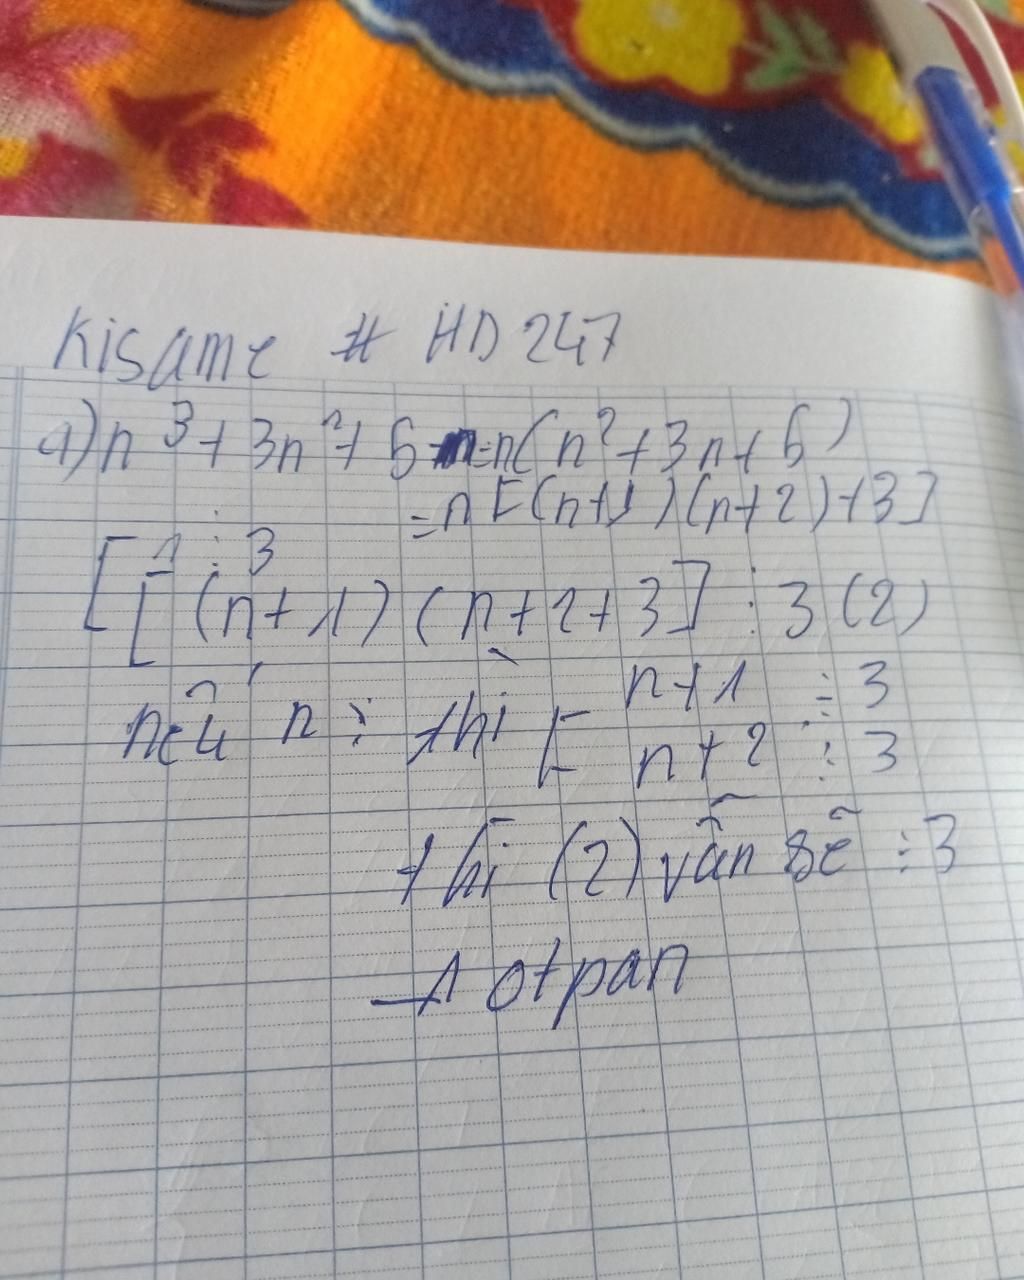 Kisame # HD247
a) n³ + 3n² + 6n = n(n² + 3n + 6)
= n[(n+1)(n+2)+3]
1 ⋮ 3
[[(n+1)(n+2+3] ⋮ 3 (2)
nếu n ⋮ thì [ n+1 ⋮ 3
n+2 ⋮ 3
thì (2) vẫn sẽ ⋮ 3